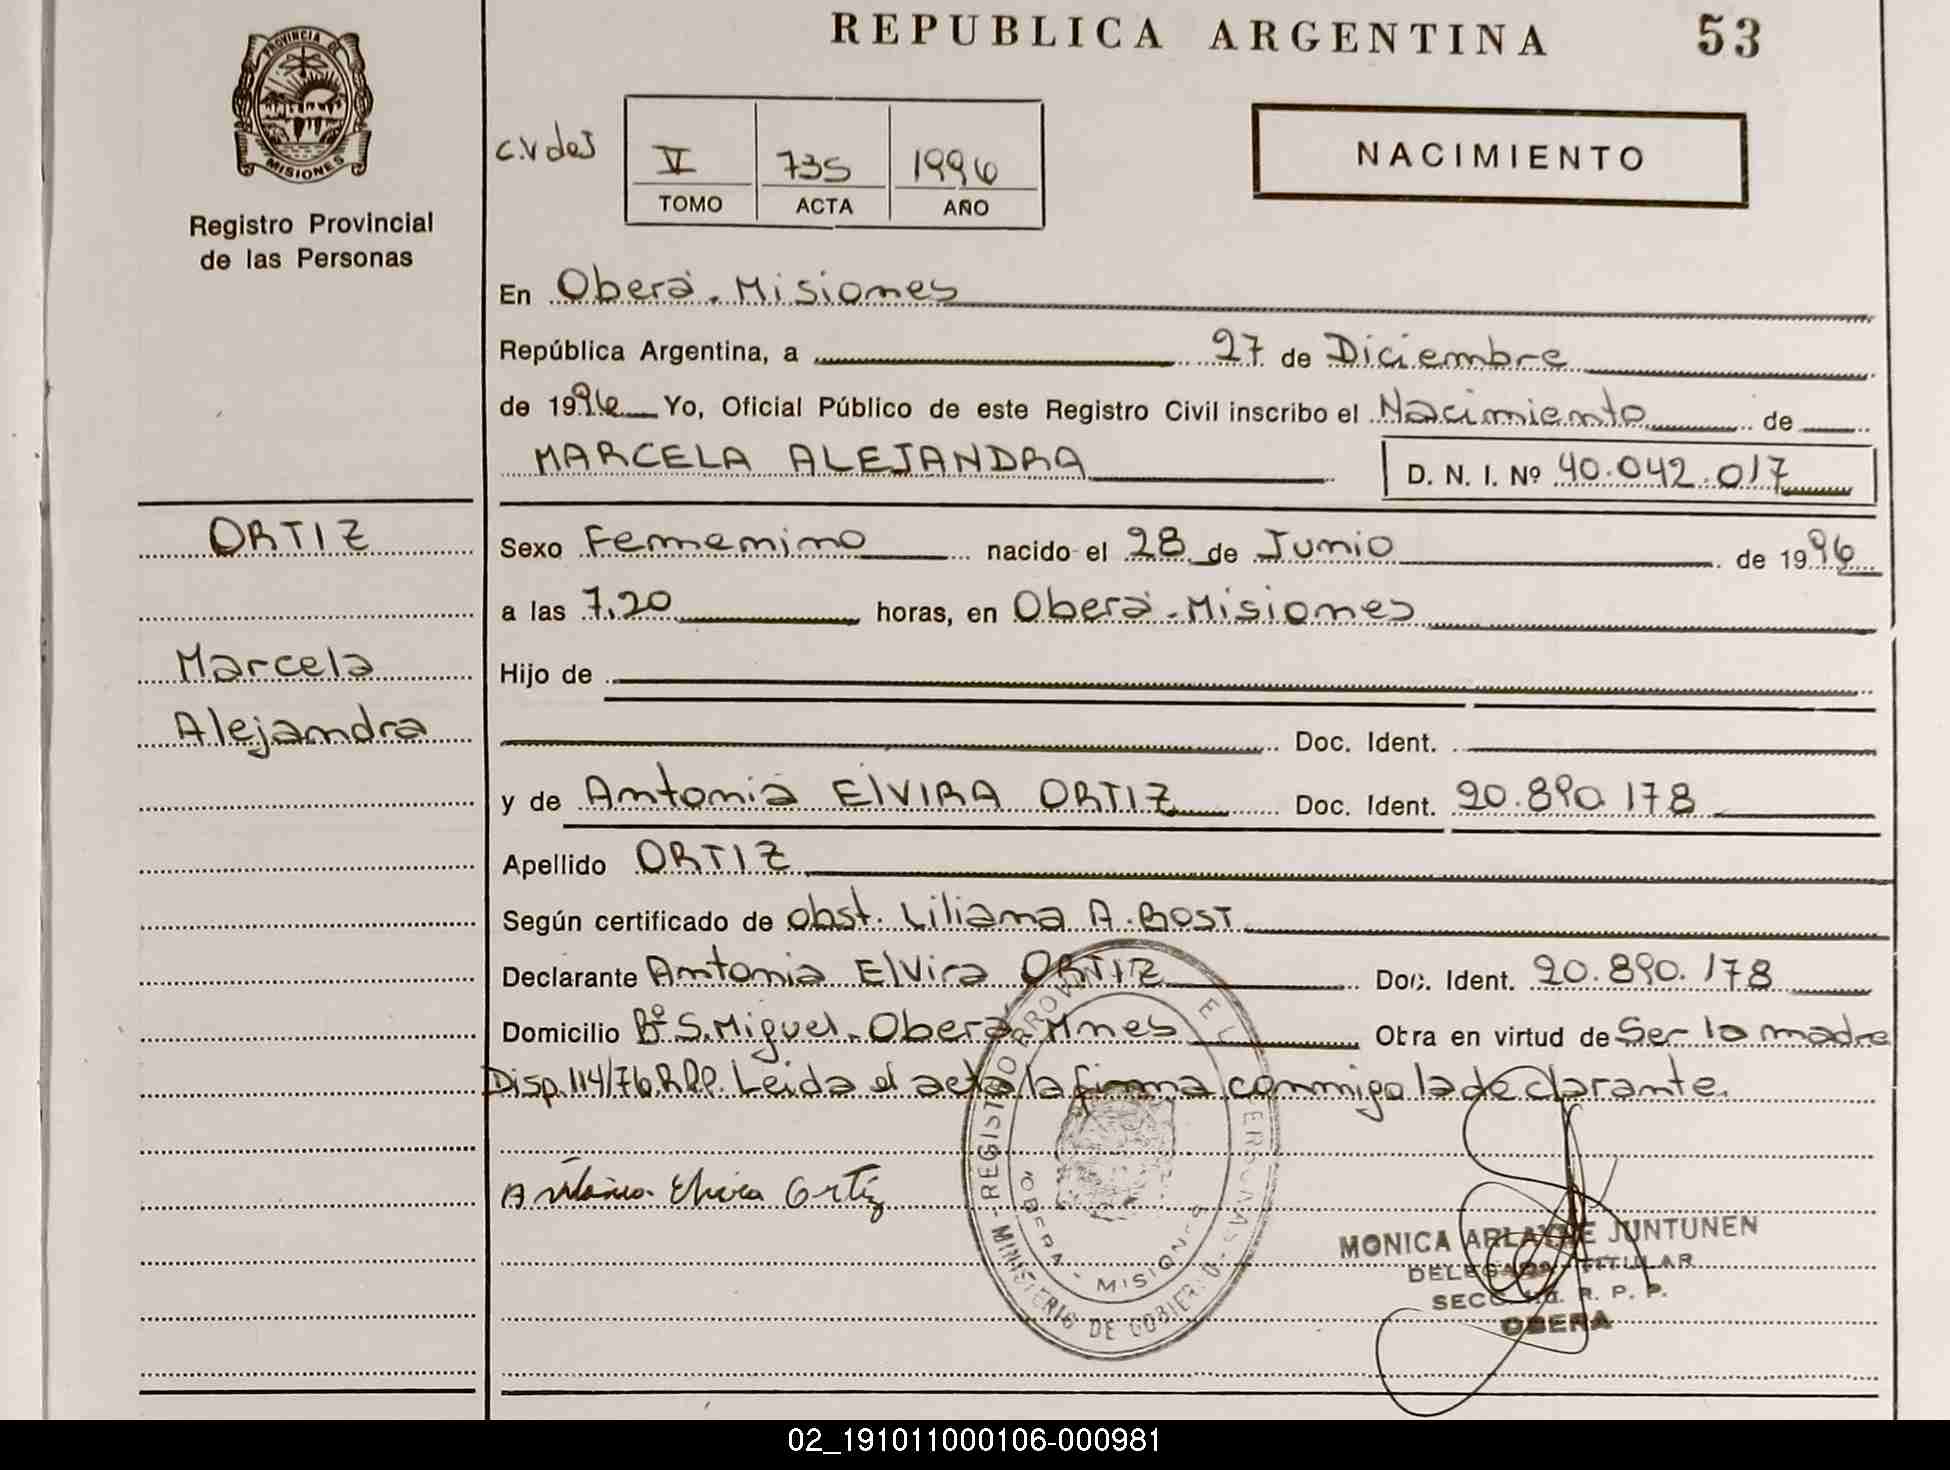 REPUBLICA ARGENTINA 53
PROVINCIA DE
MISIONES
Registro Provincial
de las Personas
C.V des
V 735 1996
TOMO ACTA AÑO
NACIMIENTO
En Oberá. Misiones
República Argentina, a 27 de Diciembre
de 1996 Yo, Oficial Público de este Registro Civil inscribo el Nacimiento de
MARCELA ALEJANDRA D. N. I. Nº 40.042.017
ORTIZ
Marcela
Alejandra
Sexo Femenino nacido el 28 de Junio de 1996
a las 7,20 horas, en Oberá-Misiones
Hijo de
Doc. Ident.
y de Antonia ElVIRA ORTIZ Doc. Ident. 20.890.178
Apellido ORTIZ
Según certificado de obst. Liliana A. BOST
Declarante Antonia ElVira ORTIZ Doc. Ident. 20.890.178
Domicilio Bº S. Miguel. Oberá Mnes Obra en virtud de Ser la madre
Disp. 114/76 R.P.P. Leida el acta la firma conmigo la declarante.
Antonia Elvira Ortiz
REGISTRO PROVIN E L ERSONAS
MINISTERIO DE GOBIERNO
OBERA - MISIONES
MONICA ARLAINE JUNTUNEN
DELEGADA TITULAR
SECC. R. P. P.
OBERA
02_191011000106-000981